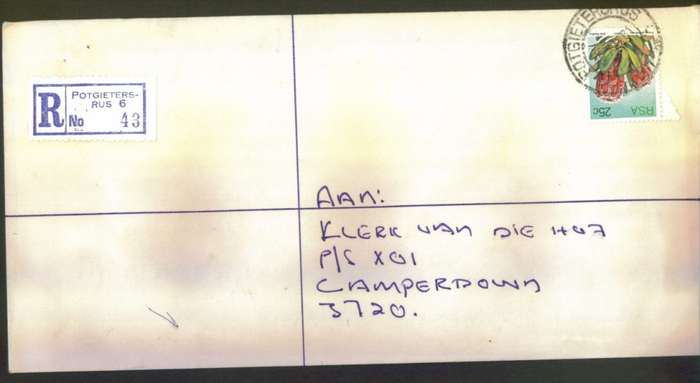 POTGIETERSRUS
25c
RSA
R
POTGIETERS-
RUS 6
No 43
AAN:
KLERK VAN DIE HOF
P/S X01
CAMPERDOWN
3720.